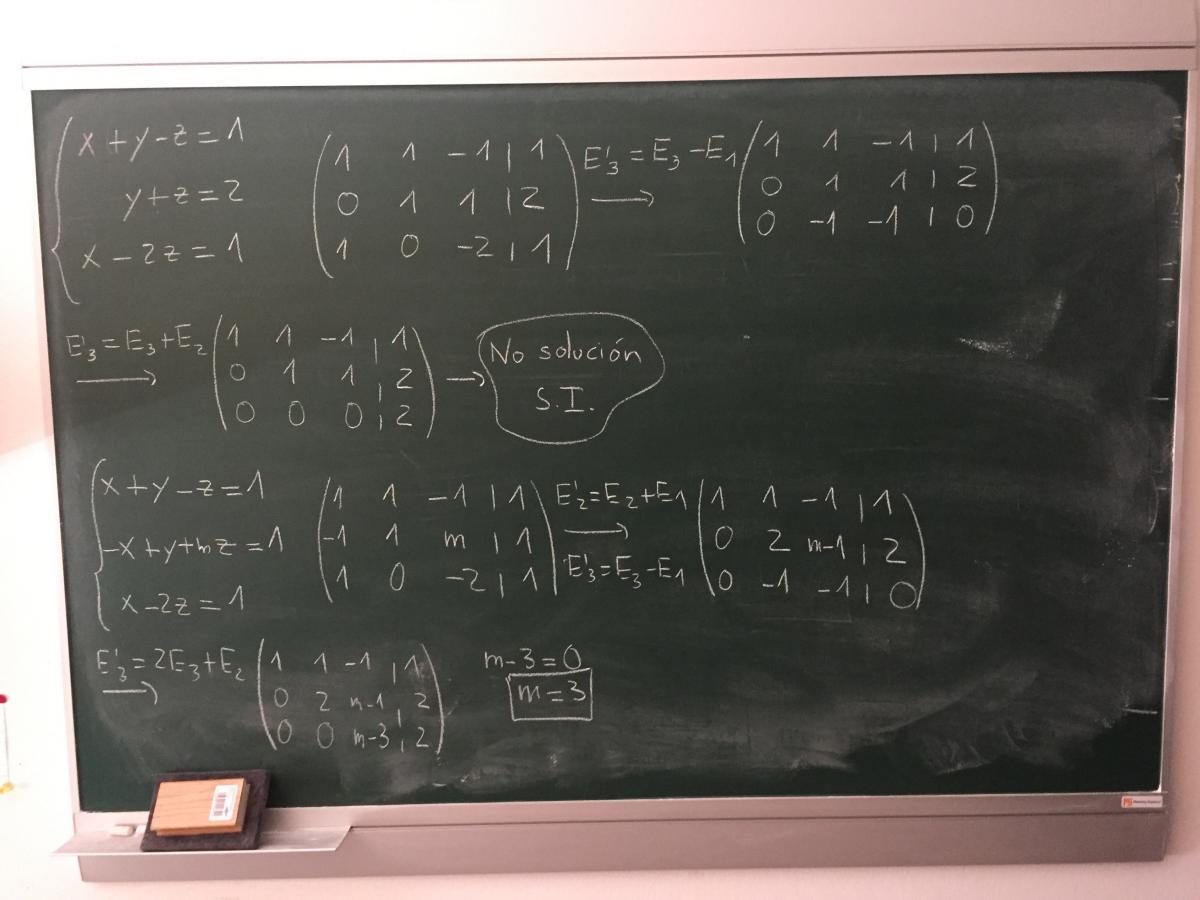 x + y - z = 1
y + z = 2
x - 2z = 1
1 1 -1 | 1
0 1 1 | 2
1 0 -2 | 1
E'3 = E3 - E1
→
1 1 -1 | 1
0 1 1 | 2
0 -1 -1 | 0
E'3 = E3 + E2
→
1 1 -1 | 1
0 1 1 | 2
0 0 0 | 2
→
No solución
S.I.
x + y - z = 1
-x + y + mz = 1
x - 2z = 1
1 1 -1 | 1
-1 1 m | 1
1 0 -2 | 1
E'2 = E2 + E1
→
E'3 = E3 - E1
1 1 -1 | 1
0 2 m-1 | 2
0 -1 -1 | 0
E'3 = 2E3 + E2
→
1 1 -1 | 1
0 2 m-1 | 2
0 0 m-3 | 2
m - 3 = 0
m = 3